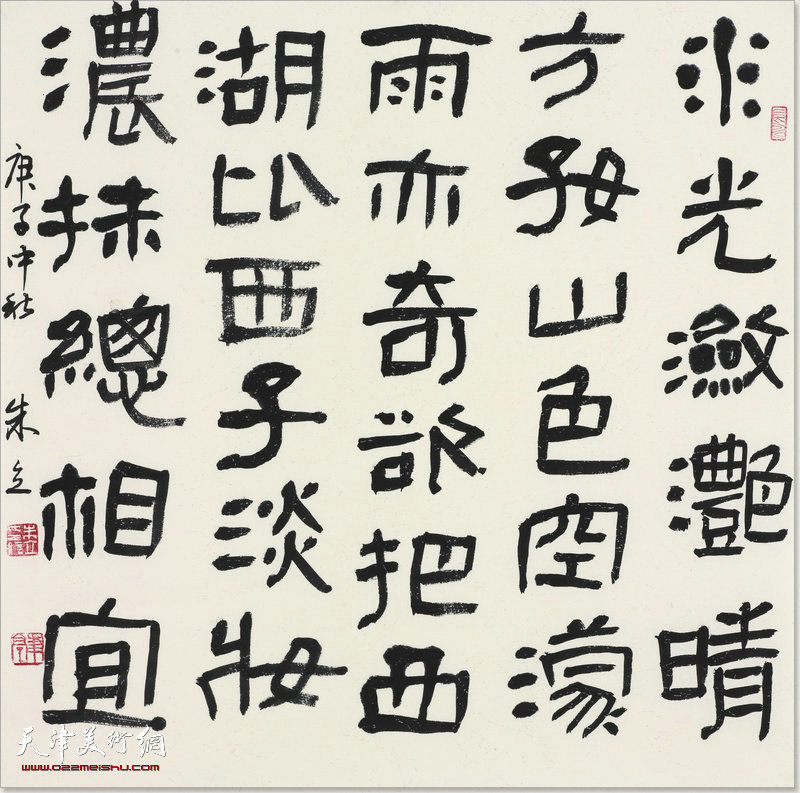 水光瀲灧晴
方好山色空濛
雨亦奇欲把西
湖比西子淡妝
濃抹總相宜
庚子中秋 朱立
天津美術網
www.022meishu.com